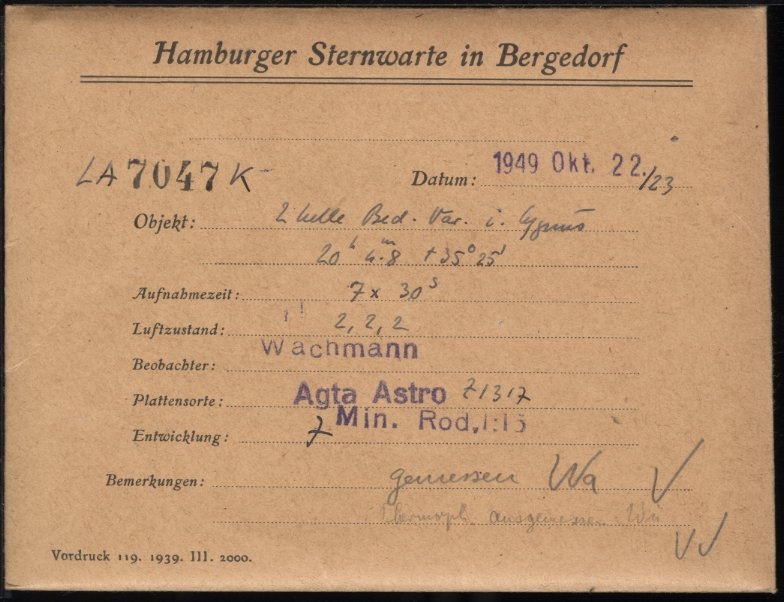 Hamburger Sternwarte in Bergedorf
LA 7047 K
Datum: 1949 Okt. 22./23
Objekt: 2 helle Bed. Var. i. Cygnus
20h 4m.8 +35° 25'
Aufnahmezeit: 7 x 30s
Luftzustand: 2, 2, 2
Beobachter: Wachmann
Plattensorte: Agfa Astro Z1317
Entwicklung: 7 Min. Rod. 1:15
Bemerkungen: gemessen Wa
ausgemessen
Vordruck 119. 1939. III. 2000.